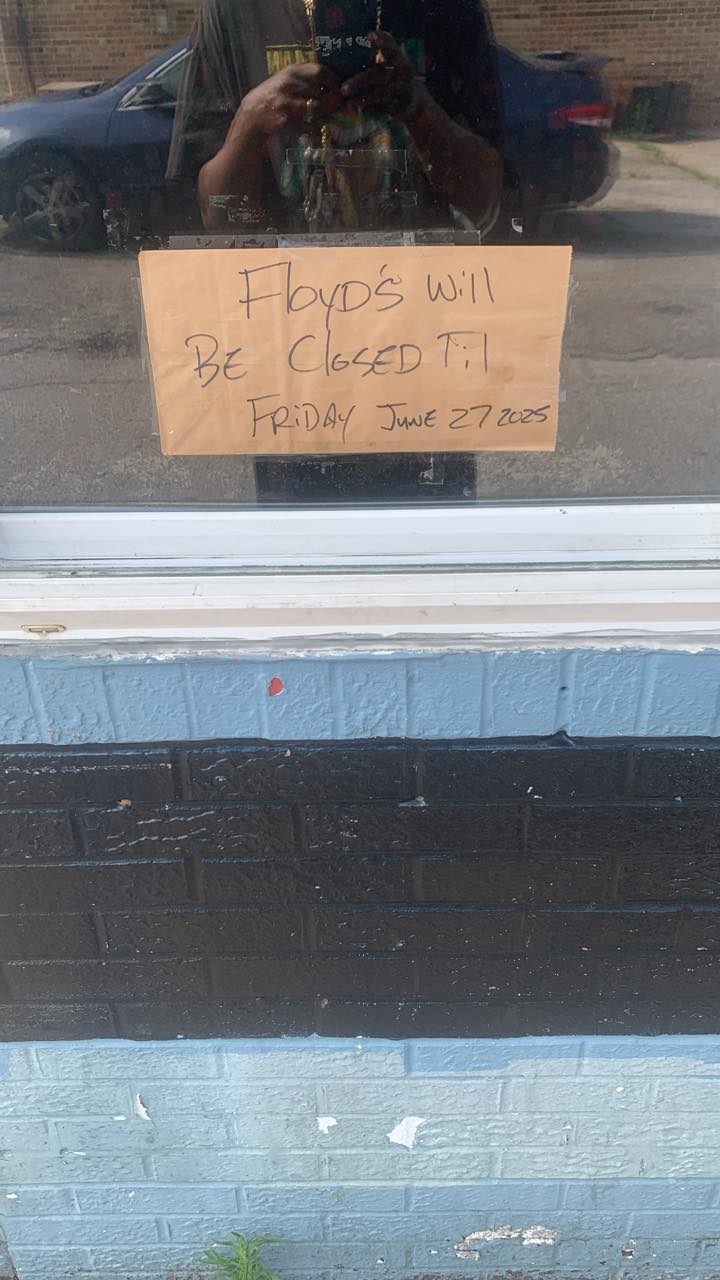 Floyd's Will
Be Closed Til
Friday June 27 2025